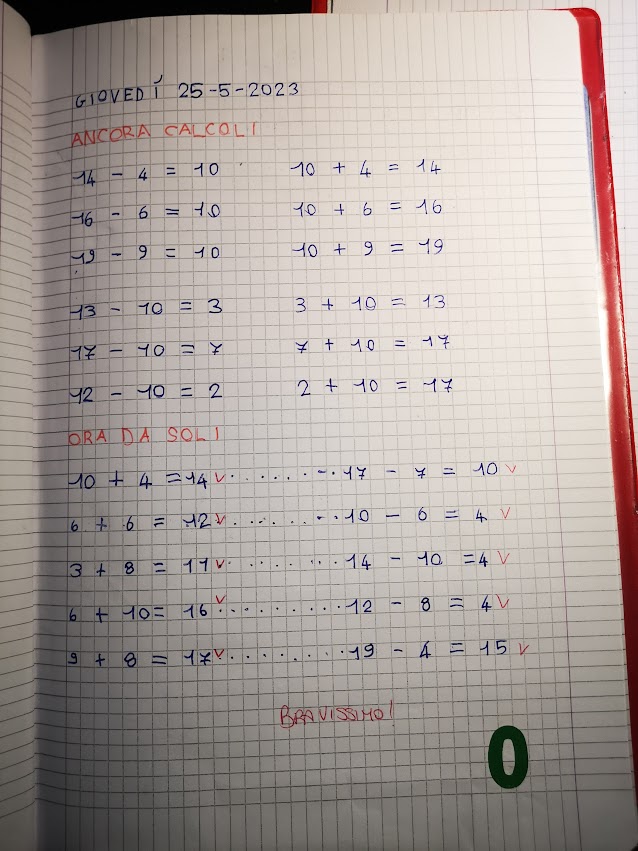 GIOVEDÍ 25-5-2023
ANCORA CALCOLI
14 - 4 = 10 10 + 4 = 14
16 - 6 = 10 10 + 6 = 16
19 - 9 = 10 10 + 9 = 19
13 - 10 = 3 3 + 10 = 13
17 - 10 = 7 7 + 10 = 17
12 - 10 = 2 2 + 10 = 17
ORA DA SOLI
10 + 4 = 14 v 17 - 7 = 10 v
6 + 6 = 12 v 10 - 6 = 4 v
3 + 8 = 11 v 14 - 10 = 4 v
6 + 10 = 16 v 12 - 8 = 4 v
9 + 8 = 17 v 19 - 4 = 15 v
BRAVISSIMO!
0